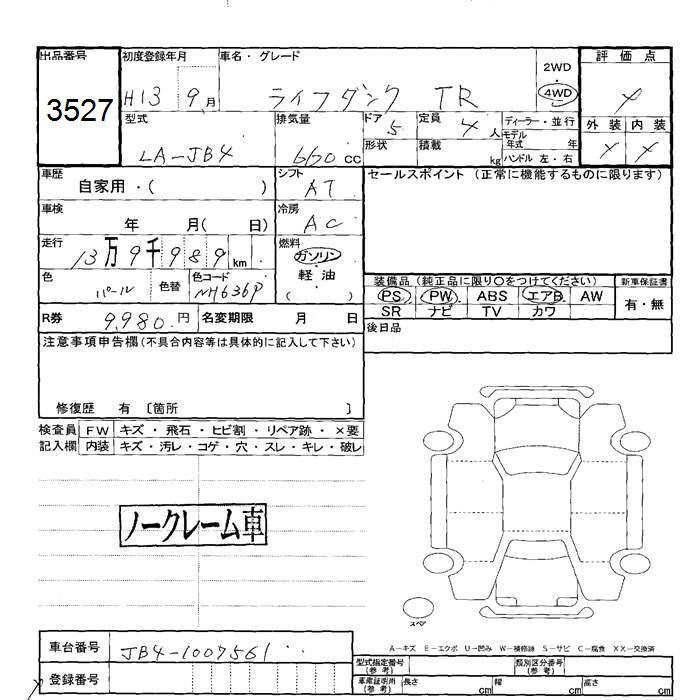 出品番号 初度登録年月 車名・グレード 2WD 評価点
3527 H13 9月 ライフダンク TR 4WD
型式 排気量 ドア 定員 ディーラー・並行 外装 内装
LA-JB4 660cc 5 4人 モデル年式 年
形状 積載 kg ハンドル 左・右
車歴 シフト セールスポイント (正常に機能するものに限ります)
自家用・( ) AT
車検 年 月( 日) 冷房 AC
走行 13万9千989km 燃料 ガソリン
軽油
( )
色 パール 色替 色コード NH636P
装備品 (純正品に限り○をつけてください) 新車保証書
PS PW ABS エアB AW 有・無
SR ナビ TV カワ
R券 9,980円 名変期限 月 日
後日品
注意事項申告欄(不具合内容等は具体的に記入して下さい)
修復歴 有 〔箇所 〕
検査員 FW キズ・飛石・ヒビ割・リペア跡・×要
記入欄 内装 キズ・汚レ・コゲ・穴・スレ・キレ・破レ
ノークレーム車
スペア
A−キズ E−エクボ U−凹み W−補修跡 S−サビ C−腐食 XX−交換済
車台番号 JB4-1007561
登録番号
型式指定番号(参考) 類別区分番号(参考)
車庫証明用(参考) 長さ cm 幅 cm 高さ cm